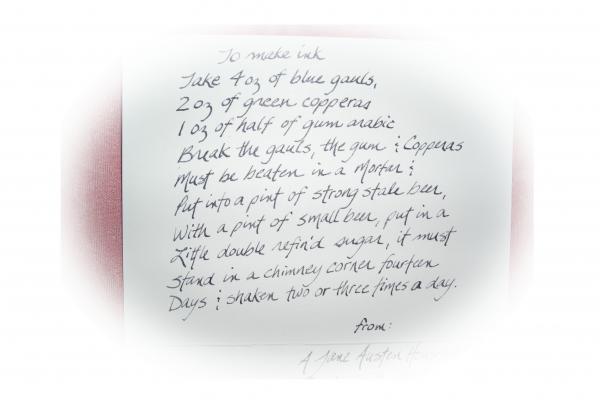 To make ink
Take 4 oz of blue gauls,
2 oz of green copperas
1 oz of half of gum arabic
Break the gauls, the gum & Copperas
Must be beaten in a Mortar &
Put into a pint of strong stale beer,
With a pint of small beer, put in a
Little double refin'd sugar, it must
Stand in a chimney corner fourteen
Days & shaken two or three times a day.
from:
A Jane Austen